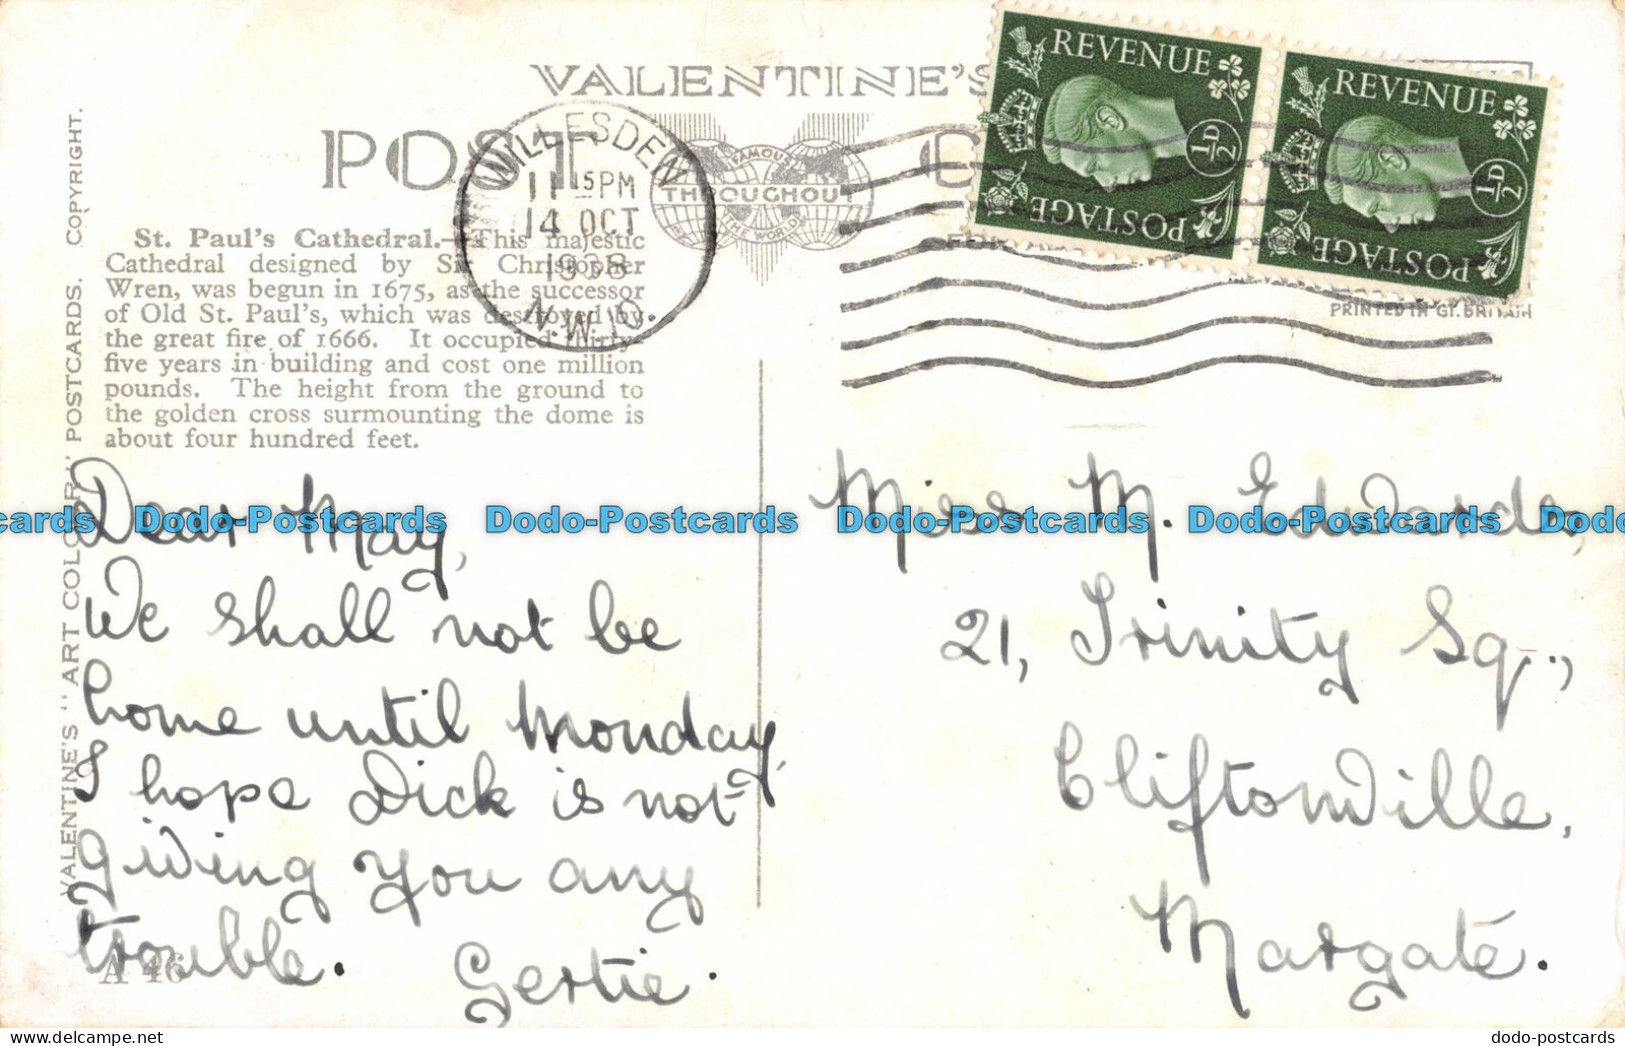 VALENTINE'S
POST C
FAMOUS
THROUGHOUT
THE WORLD
WILLESDEN
11 15 PM
14 OCT
1938
N.W.10.
REVENUE
½D
POSTAGE
REVENUE
½D
POSTAGE
PRINTED IN GT. BRITAIN
VALENTINE'S "ART COLOUR" POSTCARDS. COPYRIGHT.
St. Paul's Cathedral.—This majestic
Cathedral designed by Sir Christopher
Wren, was begun in 1675, as the successor
of Old St. Paul's, which was destroyed by
the great fire of 1666. It occupied thirty-
five years in building and cost one million
pounds. The height from the ground to
the golden cross surmounting the dome is
about four hundred feet.
Dear May,
We shall not be
home until Monday,
I hope Dick is not
giving you any
trouble.
Gertie.
A 46
Miss M. Edwards,
21, Trinity Sq.,
Cliftonville,
Margate.
cards Dodo-Postcards Dodo-Postcards Dodo-Postcards Dodo-Postcards Dodo
dodo-postcards